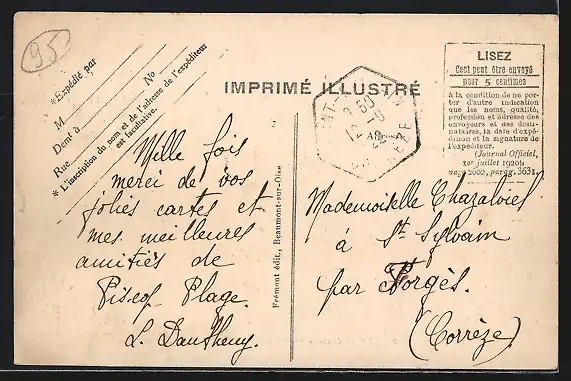 95
*Expédié par
M
No
Demt à
Rue
* L'inscription du nom et de l'adresse de l'expéditeur
est facultative.
IMPRIMÉ ILLUSTRÉ
LISEZ
Ceci peut être envoyé
pour 5 centimes
à la condition de ne por-
ter d'autre indication
que les noms, qualité,
profession et adresse des
envoyeurs et des desti-
nataires, la date d'expé-
dition et la signature de
l'Expéditeur.
(Journal Officiel,
1er juillet 1920),
page 2002, parag. 3631
Mille fois
merci de vos
jolies cartes et
mes meilleures
amitiés de
Piscop Plage.
L. Dauthemy.
Frémont édit., Beaumont-sur-Oise
Mademoiselle Chazalviel
à St Sylvain
par Forgès.
(Corrèze)